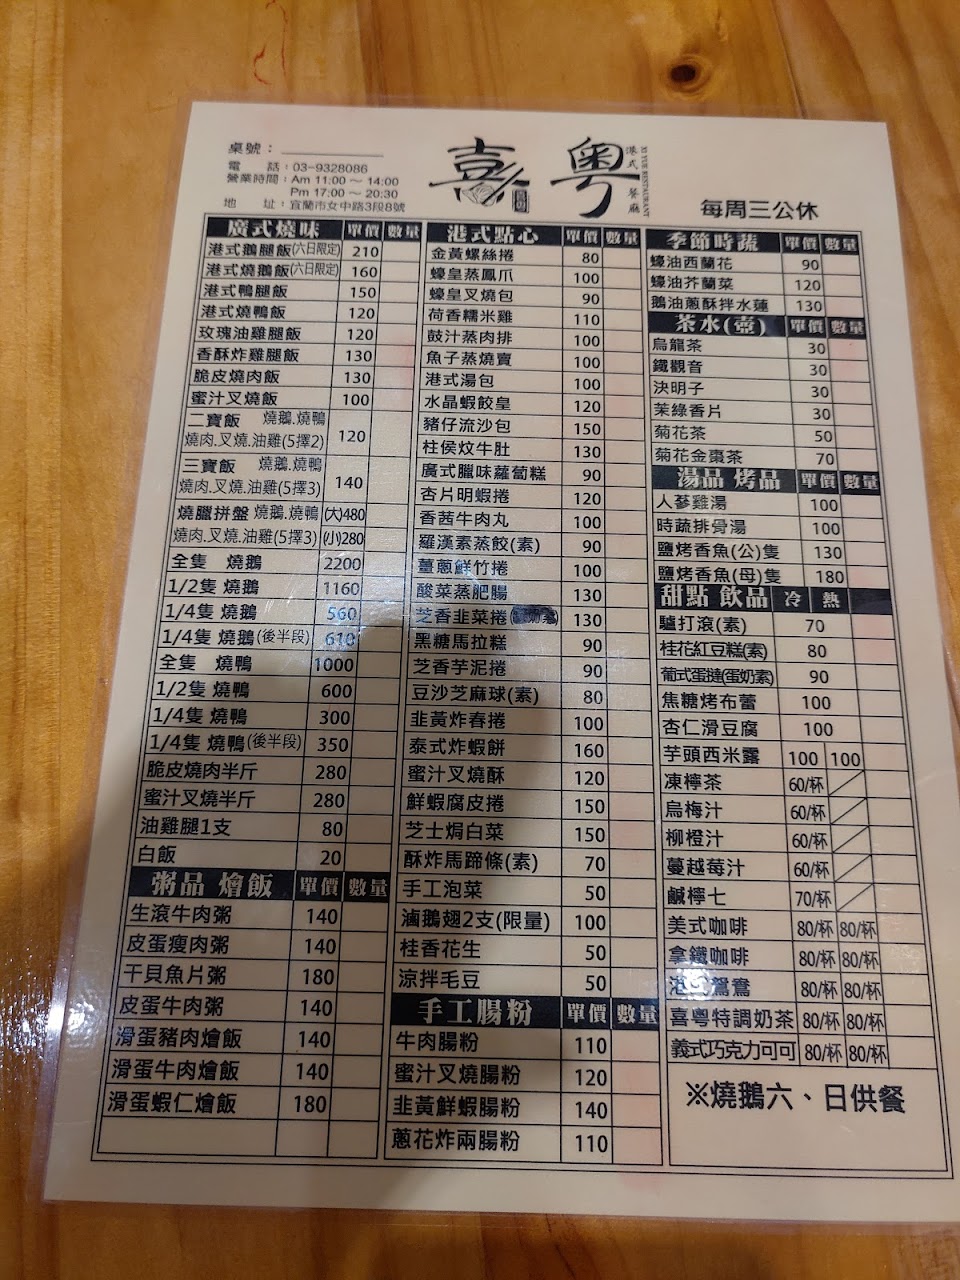 桌號：
電　話：03-9328086
營業時間：Am 11:00 ～ 14:00
Pm 17:00 ～ 20:30
地　址：宜蘭市女中路3段8號
喜粵
港式餐廳
XI YUE RESTAURANT
每周三公休
廣式燒味 單價 數量
港式鵝腿飯(六日限定) 210
港式燒鵝飯(六日限定) 160
港式鴨腿飯 150
港式燒鴨飯 120
玫瑰油雞腿飯 120
香酥炸雞腿飯 130
脆皮燒肉飯 130
蜜汁叉燒飯 100
二寶飯 燒鵝.燒鴨
燒肉.叉燒.油雞(5擇2) 120
三寶飯 燒鵝.燒鴨
燒肉.叉燒.油雞(5擇3) 140
燒臘拼盤 燒鵝.燒鴨 (大)480
燒肉.叉燒.油雞(5擇3) (小)280
全隻 燒鵝 2200
1/2隻 燒鵝 1160
1/4隻 燒鵝 560
1/4隻 燒鵝(後半段) 610
全隻 燒鴨 1000
1/2隻 燒鴨 600
1/4隻 燒鴨 300
1/4隻 燒鴨(後半段) 350
脆皮燒肉半斤 280
蜜汁叉燒半斤 280
油雞腿1支 80
白飯 20
粥品 燴飯 單價 數量
生滾牛肉粥 140
皮蛋瘦肉粥 140
干貝魚片粥 180
皮蛋牛肉粥 140
滑蛋豬肉燴飯 140
滑蛋牛肉燴飯 140
滑蛋蝦仁燴飯 180
港式點心 單價 數量
金黃螺絲捲 80
蠔皇蒸鳳爪 100
蠔皇叉燒包 90
荷香糯米雞 110
鼓汁蒸肉排 100
魚子蒸燒賣 100
港式湯包 100
水晶蝦餃皇 120
豬仔流沙包 150
柱侯炆牛肚 130
廣式臘味蘿蔔糕 90
杏片明蝦捲 120
香茜牛肉丸 100
羅漢素蒸餃(素) 90
薑蔥鮮竹捲 100
酸菜蒸肥腸 130
芝香韭菜捲 130
黑糖馬拉糕 90
芝香芋泥捲 90
豆沙芝麻球(素) 80
韭黃炸春捲 100
泰式炸蝦餅 160
蜜汁叉燒酥 120
鮮蝦腐皮捲 150
芝士焗白菜 150
酥炸馬蹄條(素) 70
手工泡菜 50
滷鵝翅2支(限量) 100
桂香花生 50
涼拌毛豆 50
手工腸粉 單價 數量
牛肉腸粉 110
蜜汁叉燒腸粉 120
韭黃鮮蝦腸粉 140
蔥花炸兩腸粉 110
季節時蔬 單價 數量
蠔油西蘭花 90
蠔油芥蘭菜 120
鵝油蔥酥拌水蓮 130
茶水(壺) 單價 數量
烏龍茶 30
鐵觀音 30
決明子 30
茉綠香片 30
菊花茶 50
菊花金棗茶 70
湯品 烤品 單價 數量
人蔘雞湯 100
時蔬排骨湯 100
鹽烤香魚(公)隻 130
鹽烤香魚(母)隻 180
甜點 飲品 冷 熱
驢打滾(素) 70
桂花紅豆糕(素) 80
葡式蛋撻(蛋奶素) 90
焦糖烤布蕾 100
杏仁滑豆腐 100
芋頭西米露 100 100
凍檸茶 60/杯
烏梅汁 60/杯
柳橙汁 60/杯
蔓越莓汁 60/杯
鹹檸七 70/杯
美式咖啡 80/杯 80/杯
拿鐵咖啡 80/杯 80/杯
港式鴛鴦 80/杯 80/杯
喜粵特調奶茶 80/杯 80/杯
義式巧克力可可 80/杯 80/杯
※燒鵝六、日供餐